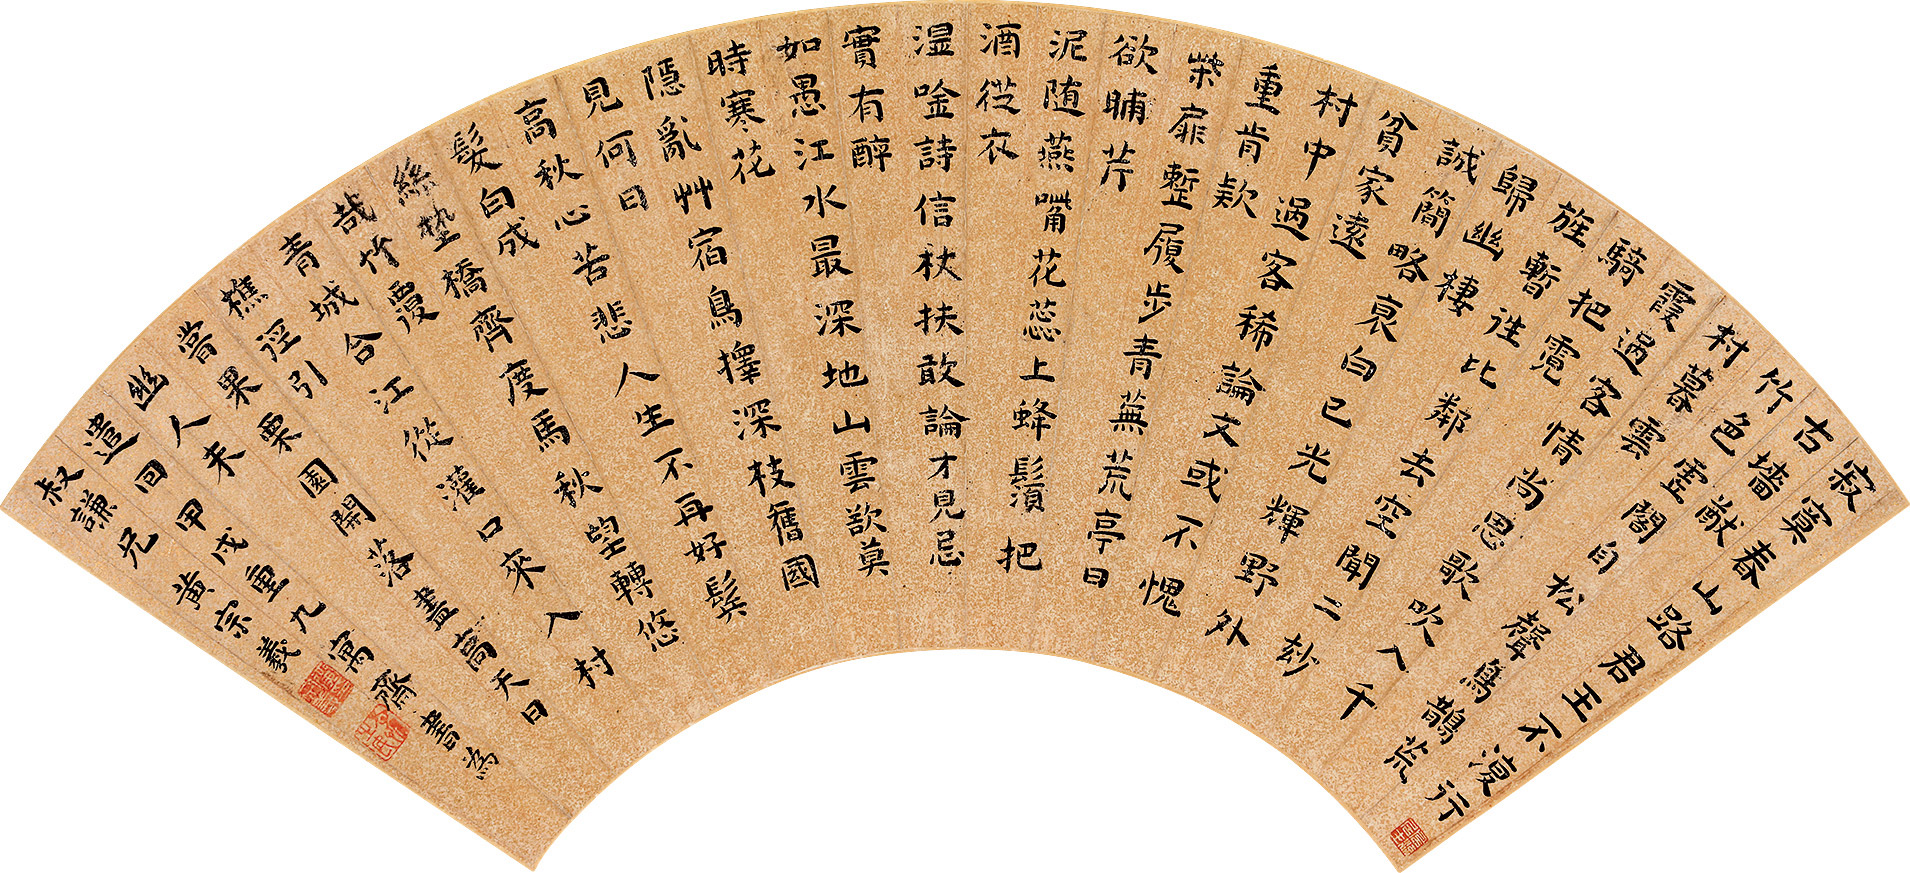 寂寞春山路君王不復行
古墻猷
竹色虛閣自松聲鳥鵲荒
村暮雲
霞過客情尚思歌吹入千
騎把霓
旌暫往比鄰去空聞二玅
歸幽棲
誠簡略衰白已光輝野外
貧家遠
村中過客稀論文或不愧
重肯欵
柴扉蹔屨步青蕪荒亭日
欲晡芹
泥随燕嘴花蕊上蜂鬚把
酒從衣
湿唫詩信杖扶敢論才見忌
實有醉
如愚江水最深地山雲欲莫
時寒花
隱亂艸宿鳥擇深枝舊國
見何日
高秋心苦悲人生不再好鬂
髮白成
絲墊橋齊度馬秋望轉悠
哉竹覆
青城合江從灌口來入村
樵徑引
嘗果栗園開落盡高天日
幽人未
遣回甲戌重九寓齋書為
叔謙兄黃宗羲